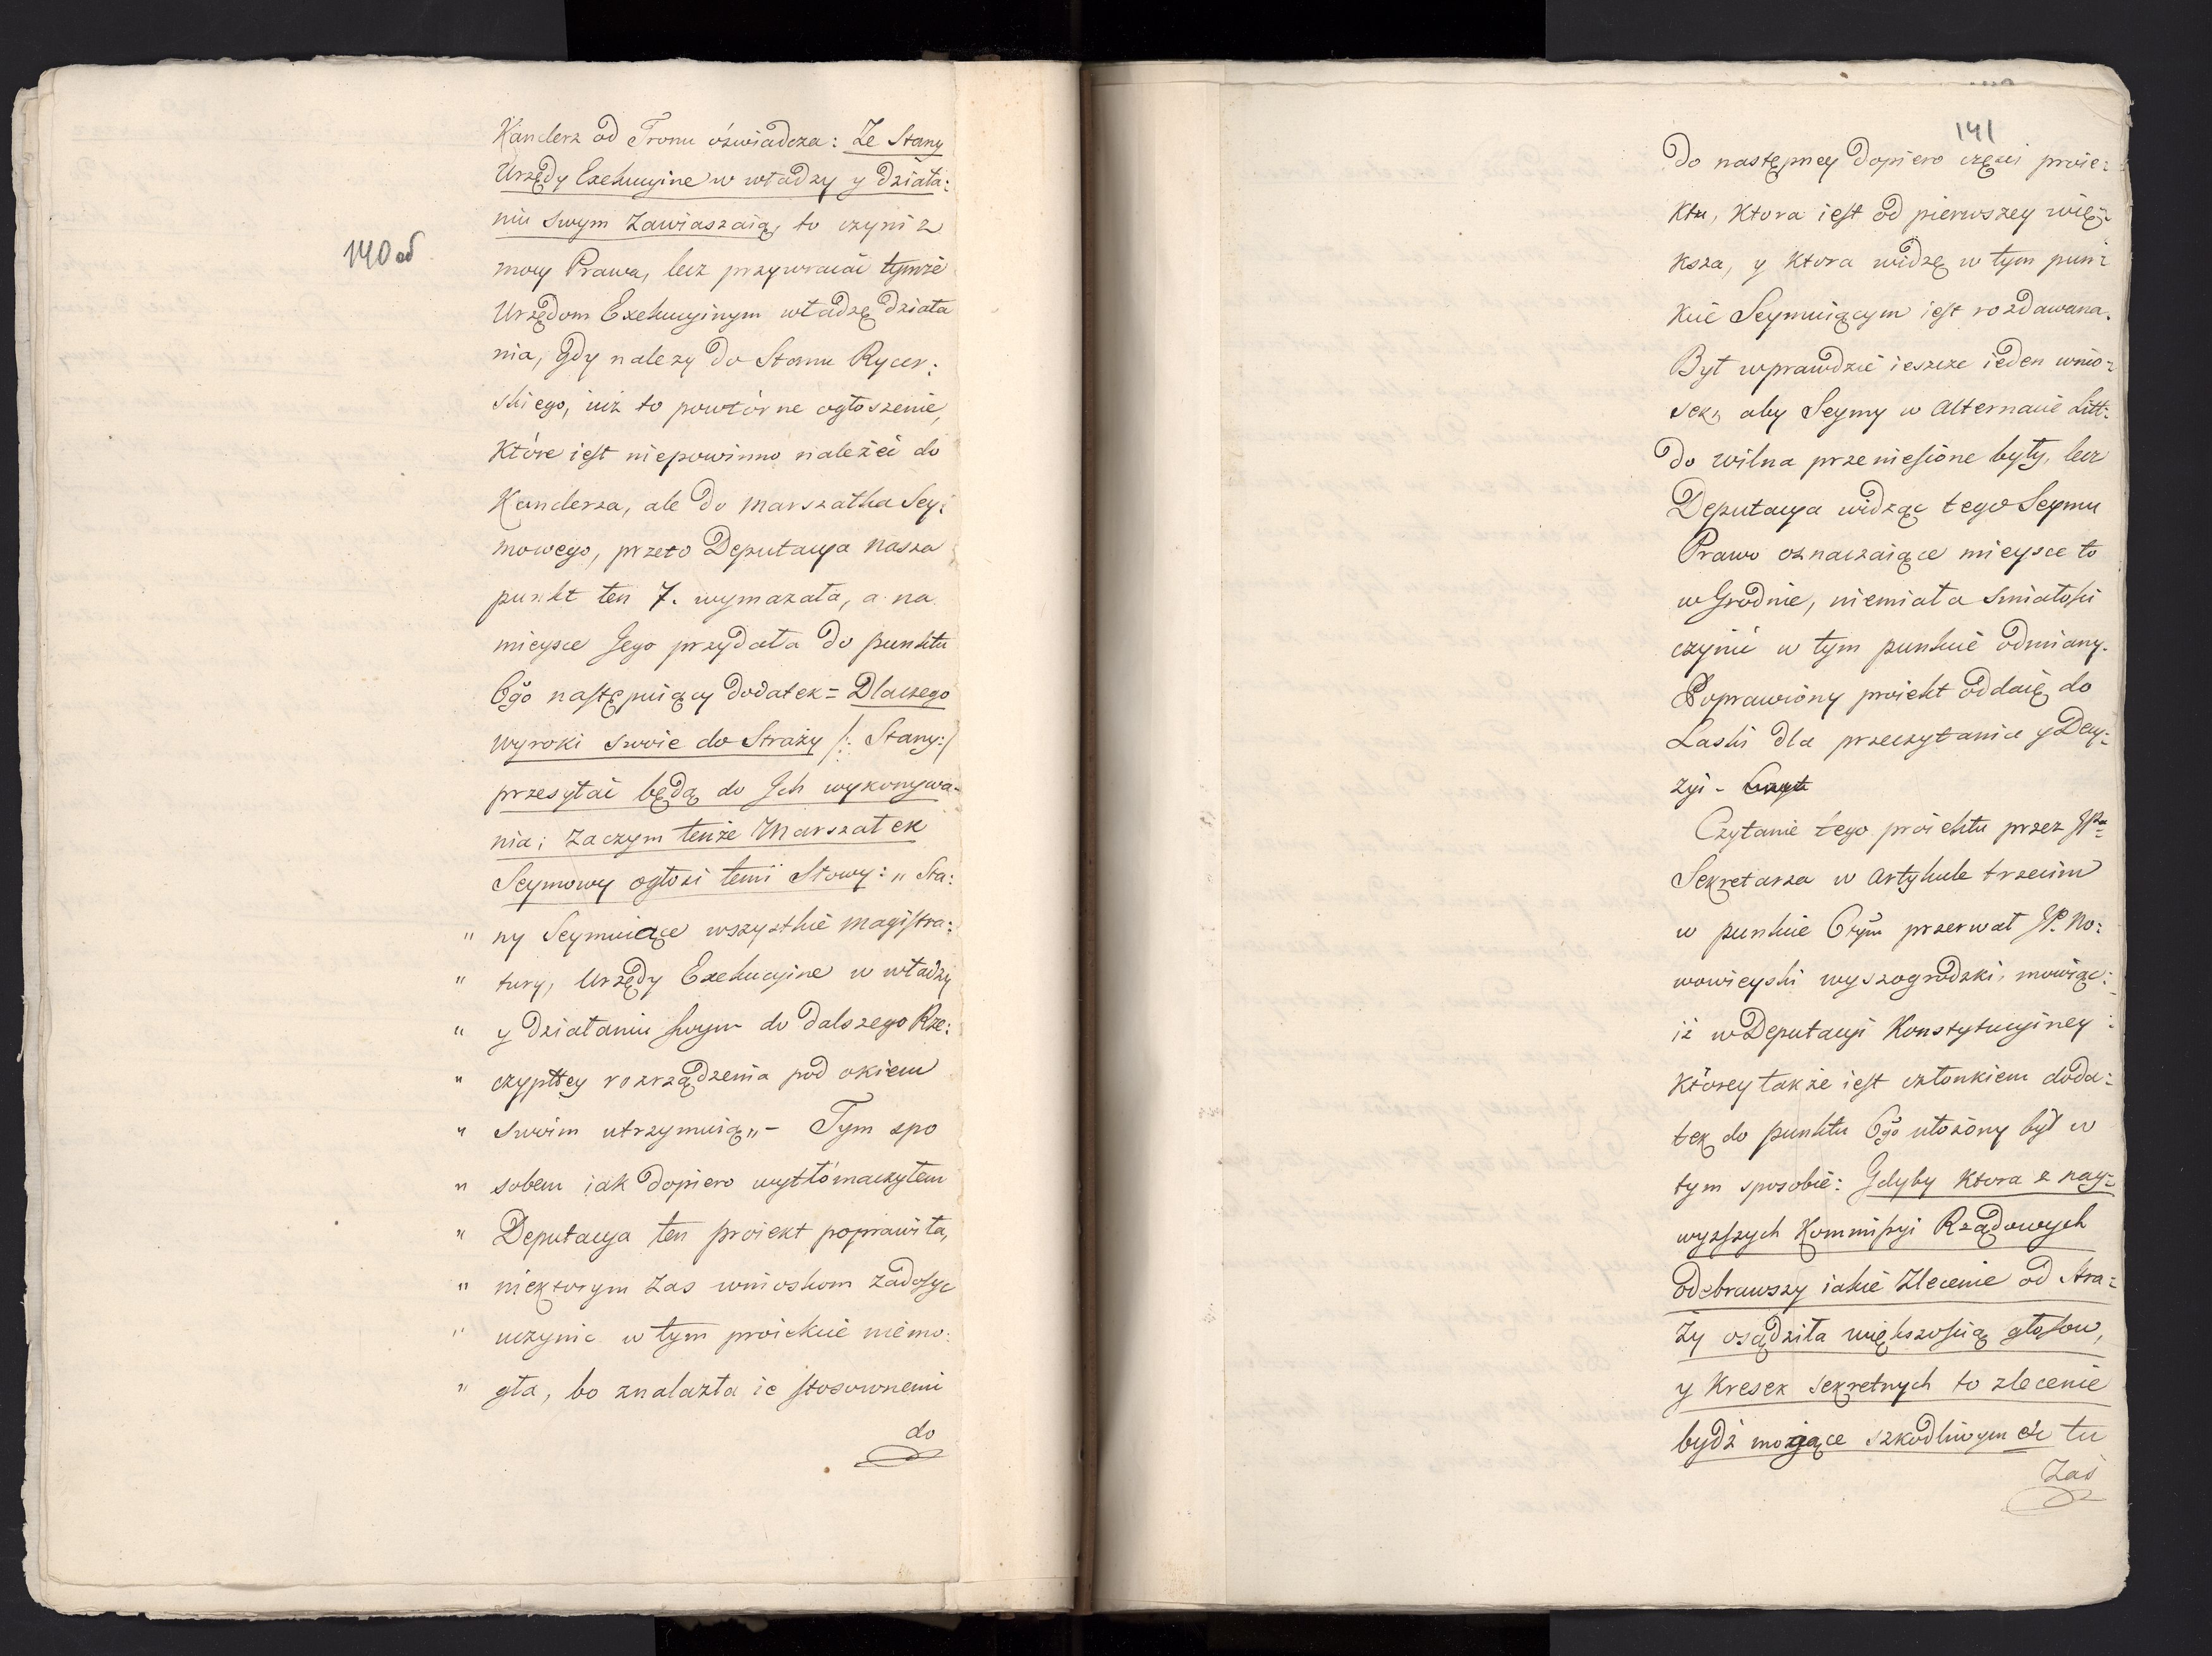 140 об
Kanclerz od Tronu óswiadcza: Że Stany
Urzędy Exekucyine w władzy y działa:
niu swym zawiaszaią, to czyni z
mocy Prawa, lecz przywracać tymże
Urzędom Exekucyinym władzę działa
nia, gdy nalezy do Stanu Rycer:
skiego, iuż to powtórne ogłoszenie,
Które iest niepowinno należeć do
Kanclerza, ale do Marszałka Sey:
mowego, przeto Deputacya nasza
punkt ten 7. wymazała, a na
mieysce Jego przydała do punktu
6go następuiący dodatek = Dlaczego
wyroki swoie do Straży /: Stany :/
przesyłać będą do Ich wykonywa-
nia; zaczym tenże Marszałek
Seymowy ogłosi temi Słowy: " Sta:
" ny Seymuiące wszystkie Magistra:
" tury, Urzędy Exekucyine w władzy
" y działaniu swym do dalszego Rze:
" czypltey rozrządzenia pod okiem
" swoim utrzymuią " - Tym spo
" sobem iak dopiero wytłómaczyłem
" Deputacya ten proiekt poprawiła,
" niektorym zas wnioskom zadosyc
" uczynic w tym proiekcie niemo:
" gła, bo znalazła ie stosownemi
do
141
Do następney dopiero części proie:
Ktu, Ktora iest od pierwszey wię:
Ksza, y Ktora widzę w tym pun:
Kcie Seymuiącym iest rozdawana.
Był wprawdzie ieszcze ieden wnio:
sek, aby Seymy w Alternacie Litt:
do Wilna przeniesione były, lecz
Deputacya widząc tego Seymu
Prawo oznaczaiące mieysce to
w Grodnie, niemiała smiałości
czynić w tym punkcie odmiany.
Poprawiony proiekt oddaię do
Laski dla przeczytania y Decy:
zyi -
Czytanie tego proiektu przez JPa
Sekretarza w Artykule trzecim
w punkcie 6tym przerwał JP. No:
wowieyski wyszogrodzki, mowiąc:
iż w Deputacyi Konstytucyiney
Którey także iest członkiem doda:
tek do punktu 6go ułożony był w
tym sposobie: Gdyby Ktora z nay:
wyższych Kommissyi Rządowych
odebrawszy iakie Zlecenie od Stra:
ży osądziła większością głosow,
y Kresek sekretnych to zlecenie
bydź mogące szkodliwym &c tu
Zaś